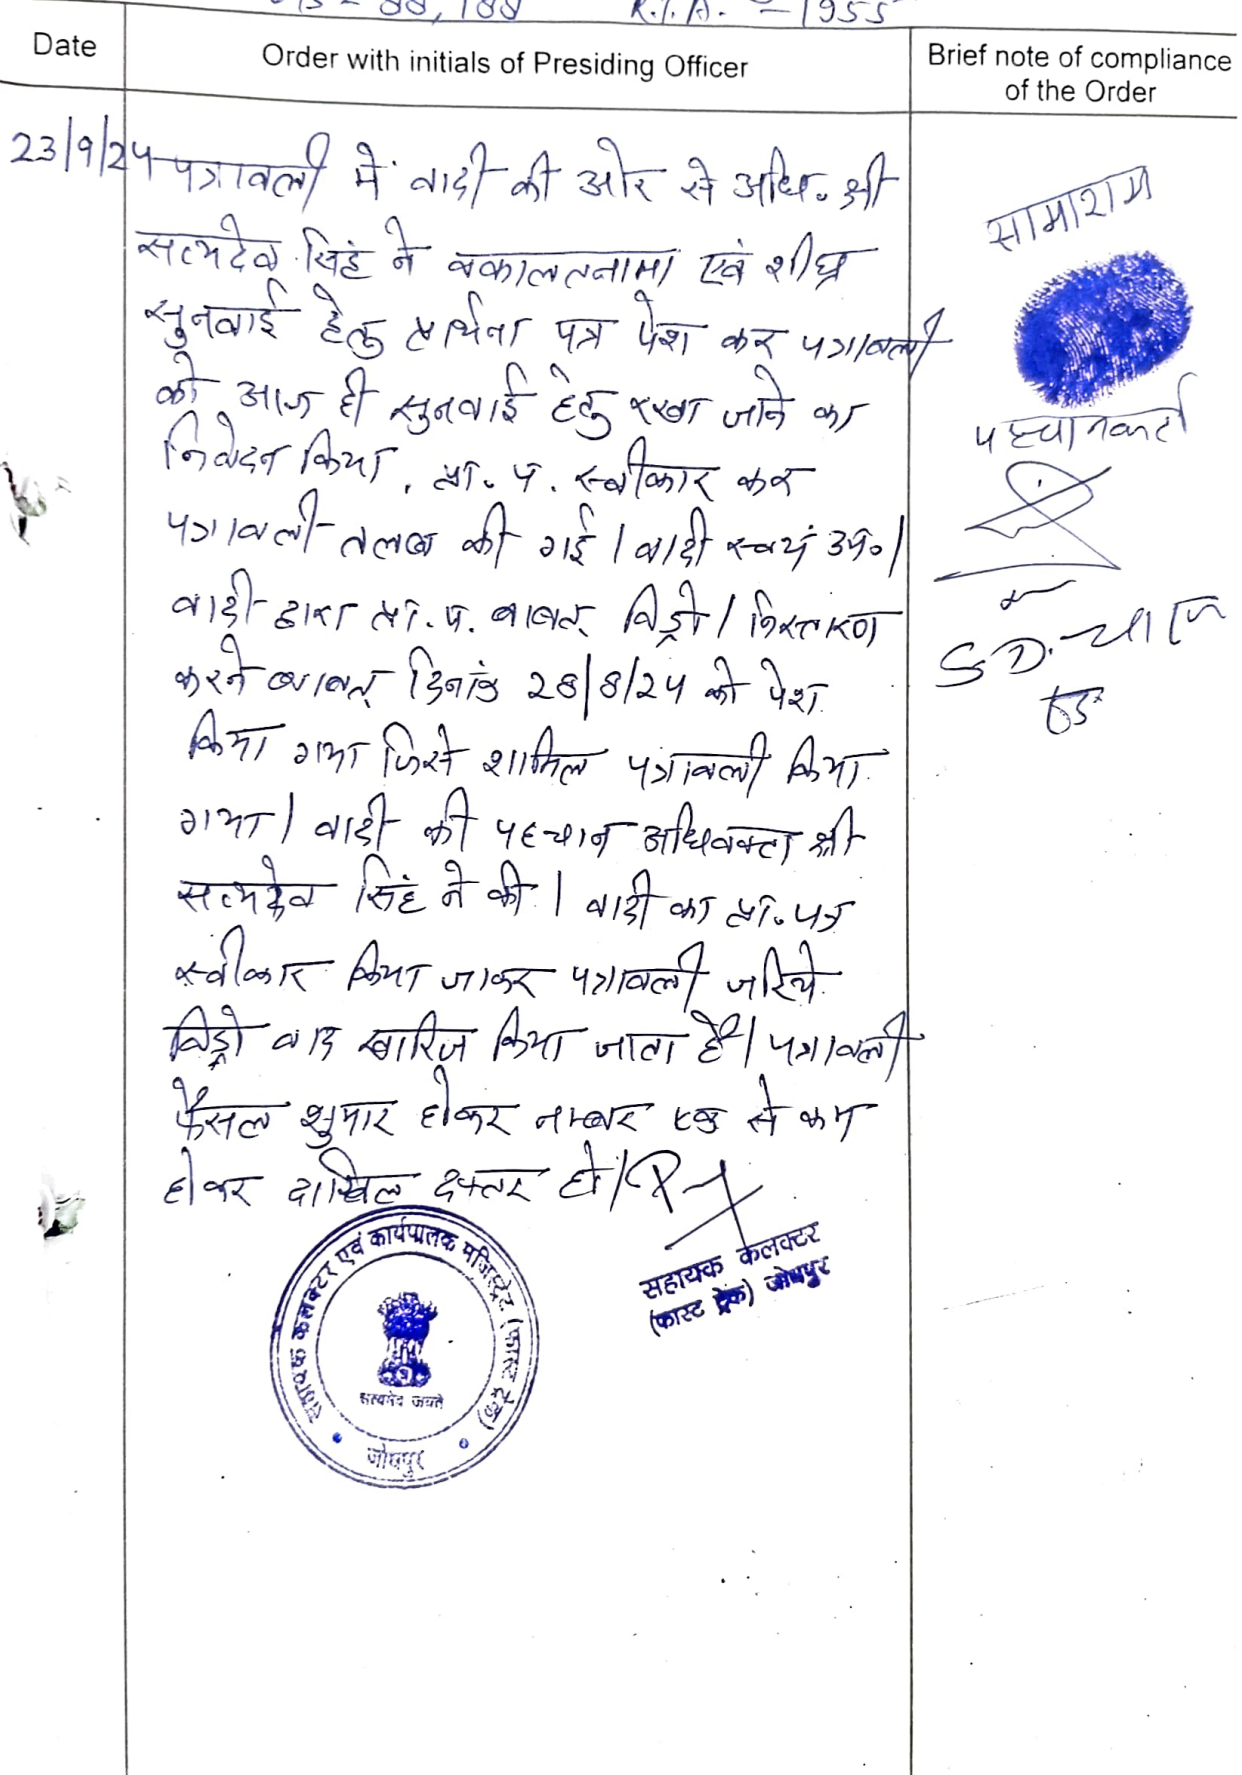 88, 188 R.T.A. - 1955
Date
Order with initials of Presiding Officer
Brief note of compliance
of the Order
23/9/24 पत्रावली में वादी की ओर से अधि. श्री
सत्यदेव सिंह ने वकालतनामा एवं शीघ्र
सुनवाई हेतु प्रार्थना पत्र पेश कर पत्रावली
को आज ही सुनवाई हेतु रखा जाने का
निवेदन किया, प्रा. प. स्वीकार कर
पत्रावली तलब की गई। वादी स्वयं उप०।
वादी द्वारा प्रा. प. बाबत् विड्रो / निस्तारण
करने बाबत् दिनांक 28/8/24 को पेश
किया गया जिसे शामिल पत्रावली किया
गया। वादी की पहचान अधिवक्ता श्री
सत्यदेव सिंह ने की। वादी का प्रा. पत्र
स्वीकार किया जाकर पत्रावली जरिये
विड्रो वाद खारिज किया जाता है। पत्रावली
फैसल शुमार होकर नम्बर एक से कम
होकर दाखिल दफ्तर हो।
सामाराम
पहचानकर्ता
S.D.
सहायक कलक्टर
(फास्ट ट्रेक) जोधपुर
सहायक कलक्टर एवं कार्यपालक मजिस्ट्रेट (फास्ट ट्रेक)
सत्यमेव जयते
जोधपुर